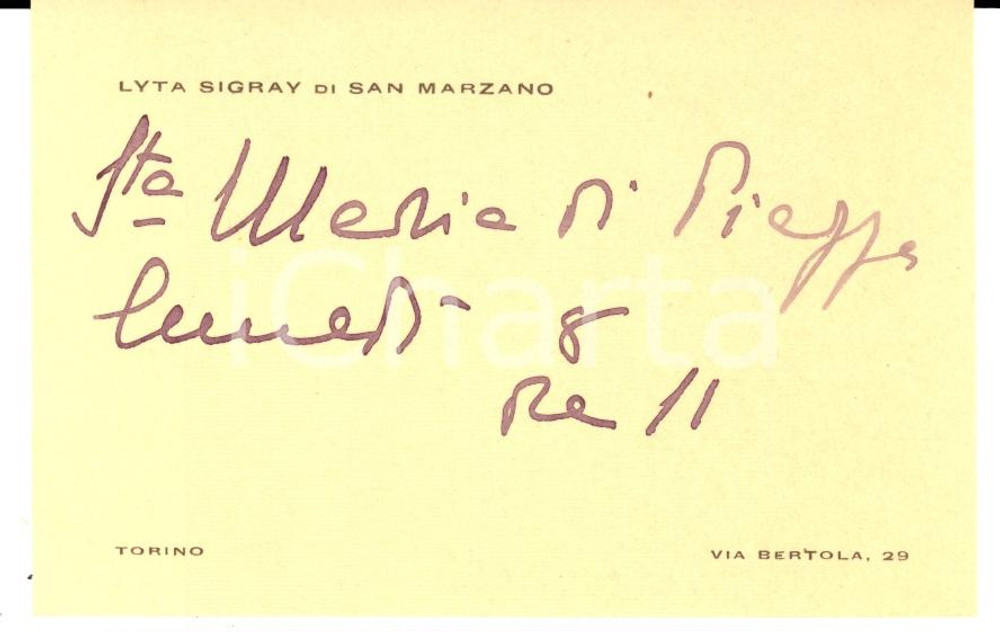 LYTA SIGRAY DI SAN MARZANO
Sta Maria di Piazza
lunedì 8
ore 11
iCharta
TORINO
VIA BERTOLA, 29